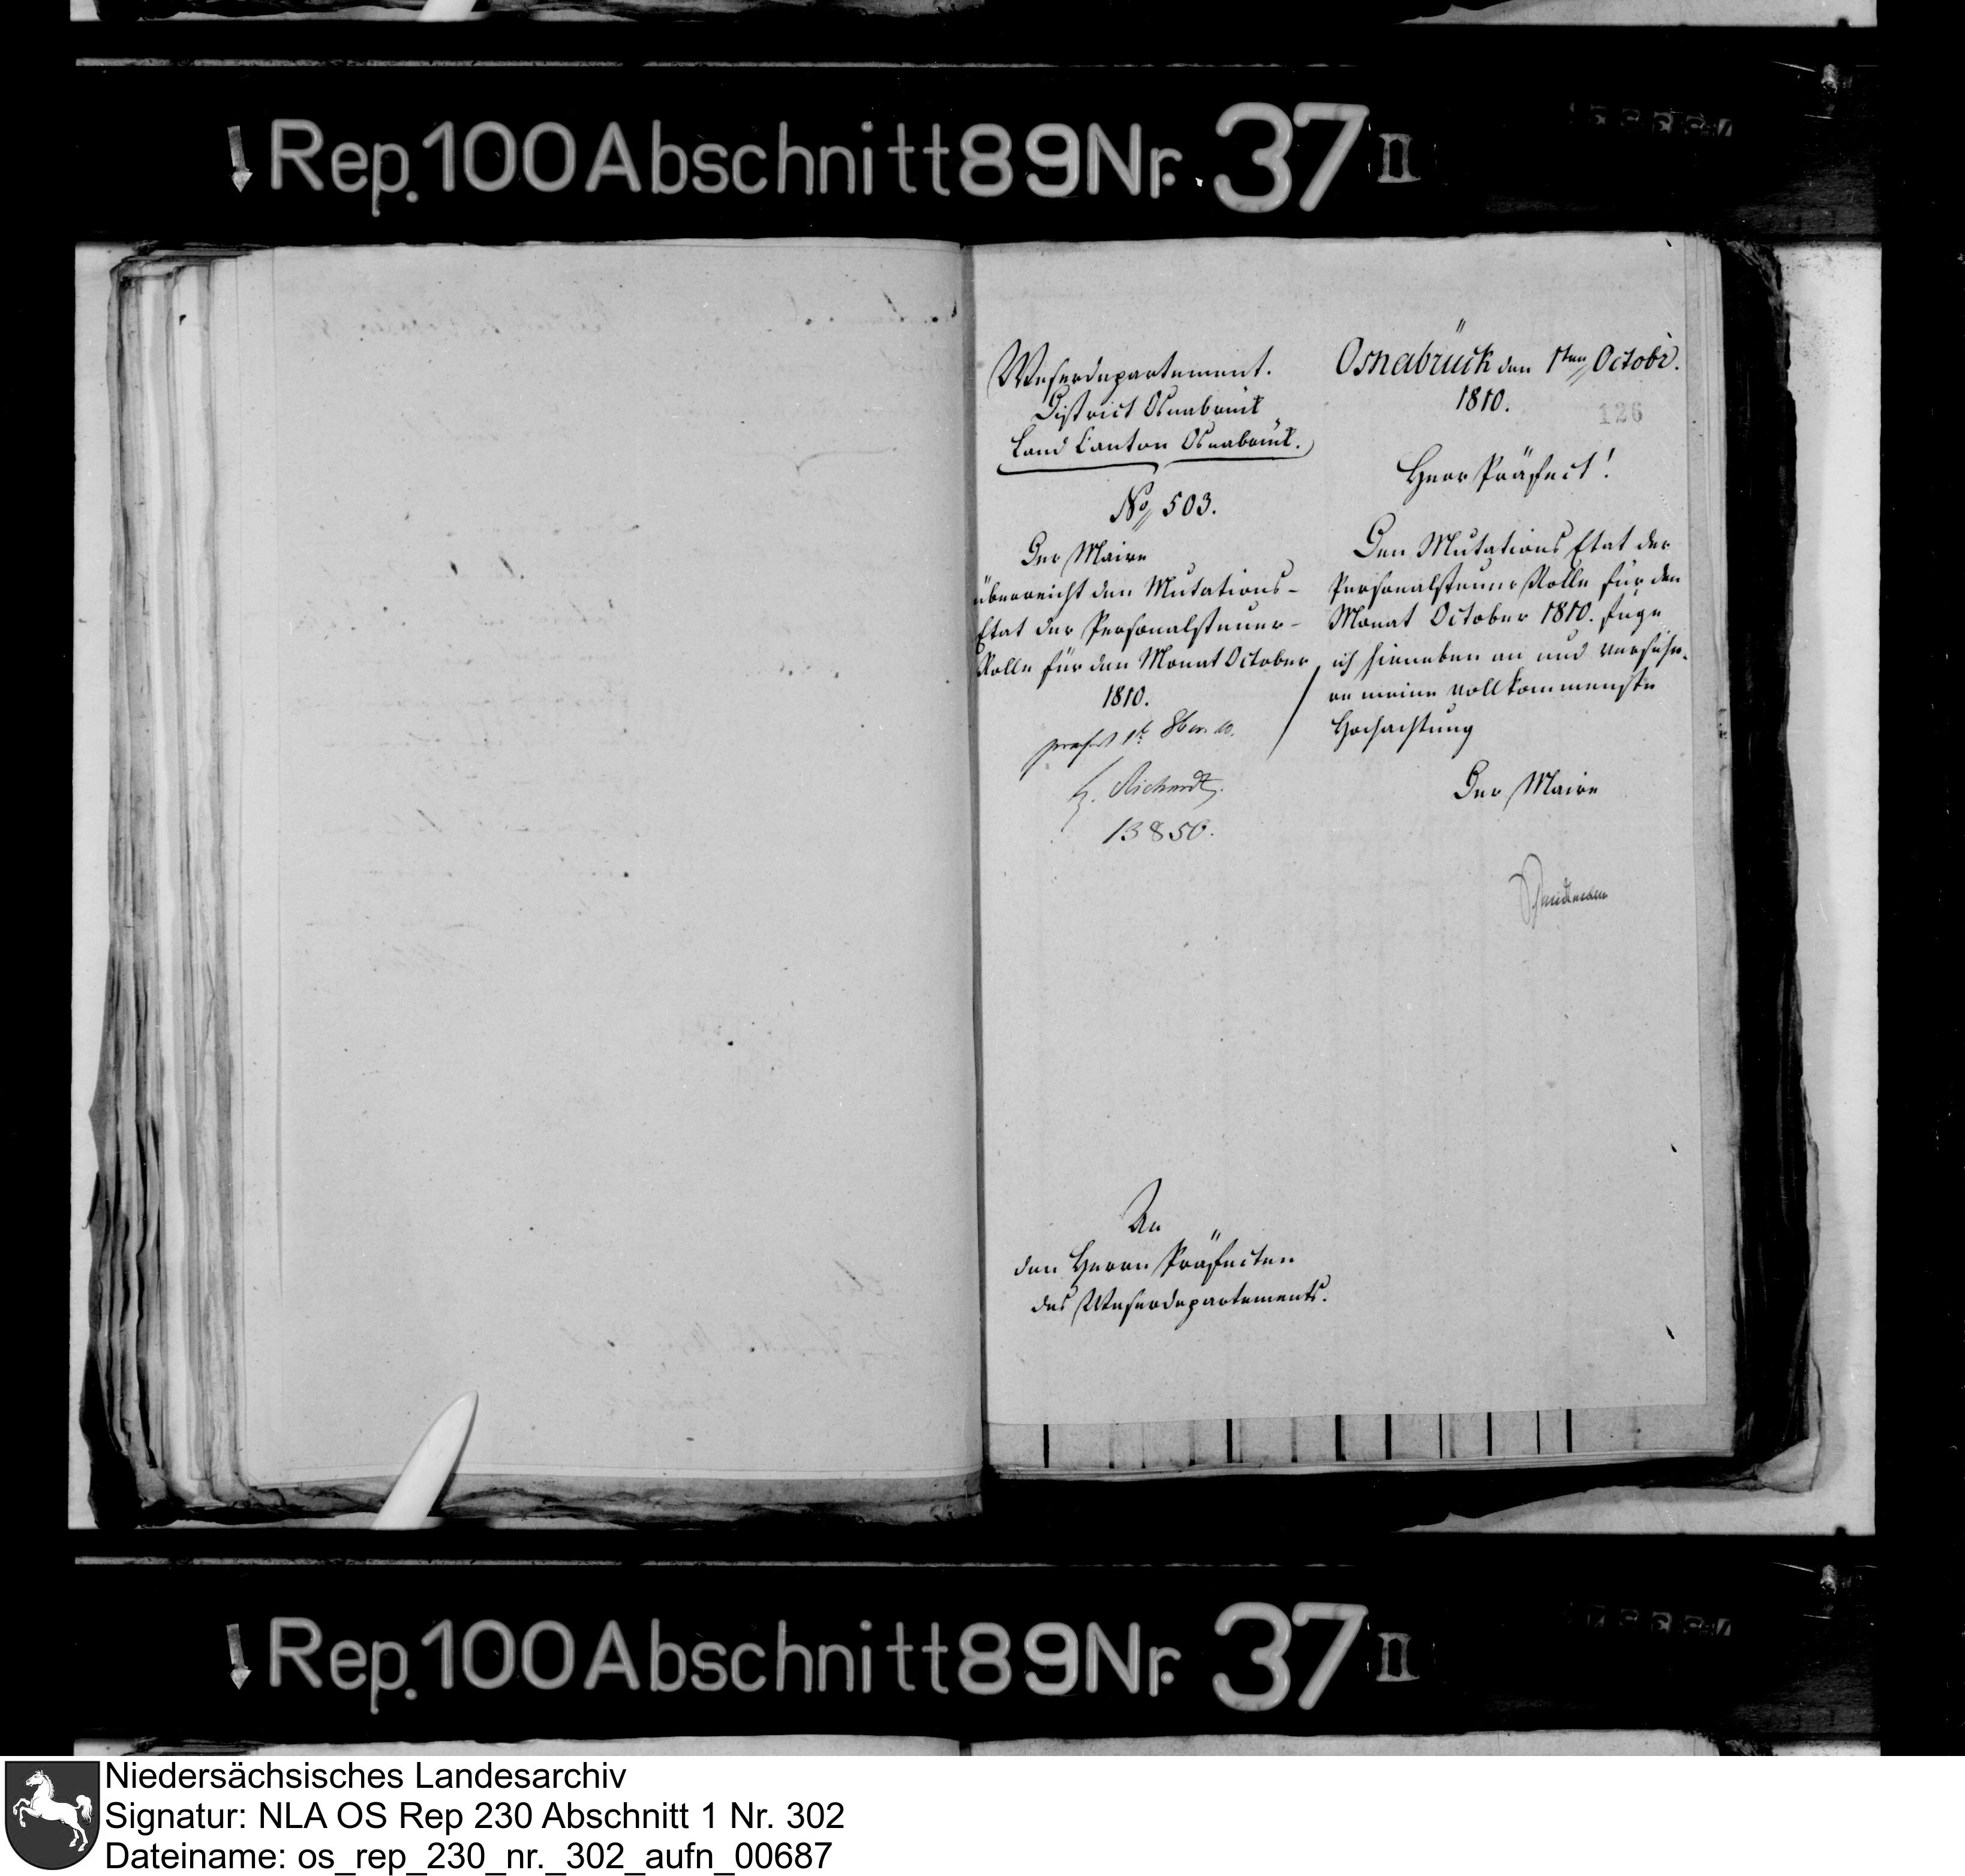 Rep. 100 Abschnitt 89 Nr. 37 II
Weserdepartement.
District Osnabrück
Land Canton Osnabrück.
No 503.
Der Maire
überreicht den Mutations-
Etat der Personalsteuer-
Rolle für den Monat October
1810.
praes. 1t 8br. 10.
h. Richard
13850.
An
den Herrn Präfecten
des Weserdepartements.
Osnabrück den 1ten Octobr.
1810.
126
Herr Präfect!
Den Mutations Etat der
Personalsteuer Rolle für den
Monat October 1810. füge
ich hieneben an und versiche-
re meine vollkommenste
Hochachtung
Der Maire
Rep. 100 Abschnitt 89 Nr. 37 II
Niedersächsisches Landesarchiv
Signatur: NLA OS Rep 230 Abschnitt 1 Nr. 302
Dateiname: os_rep_230_nr._302_aufn_00687